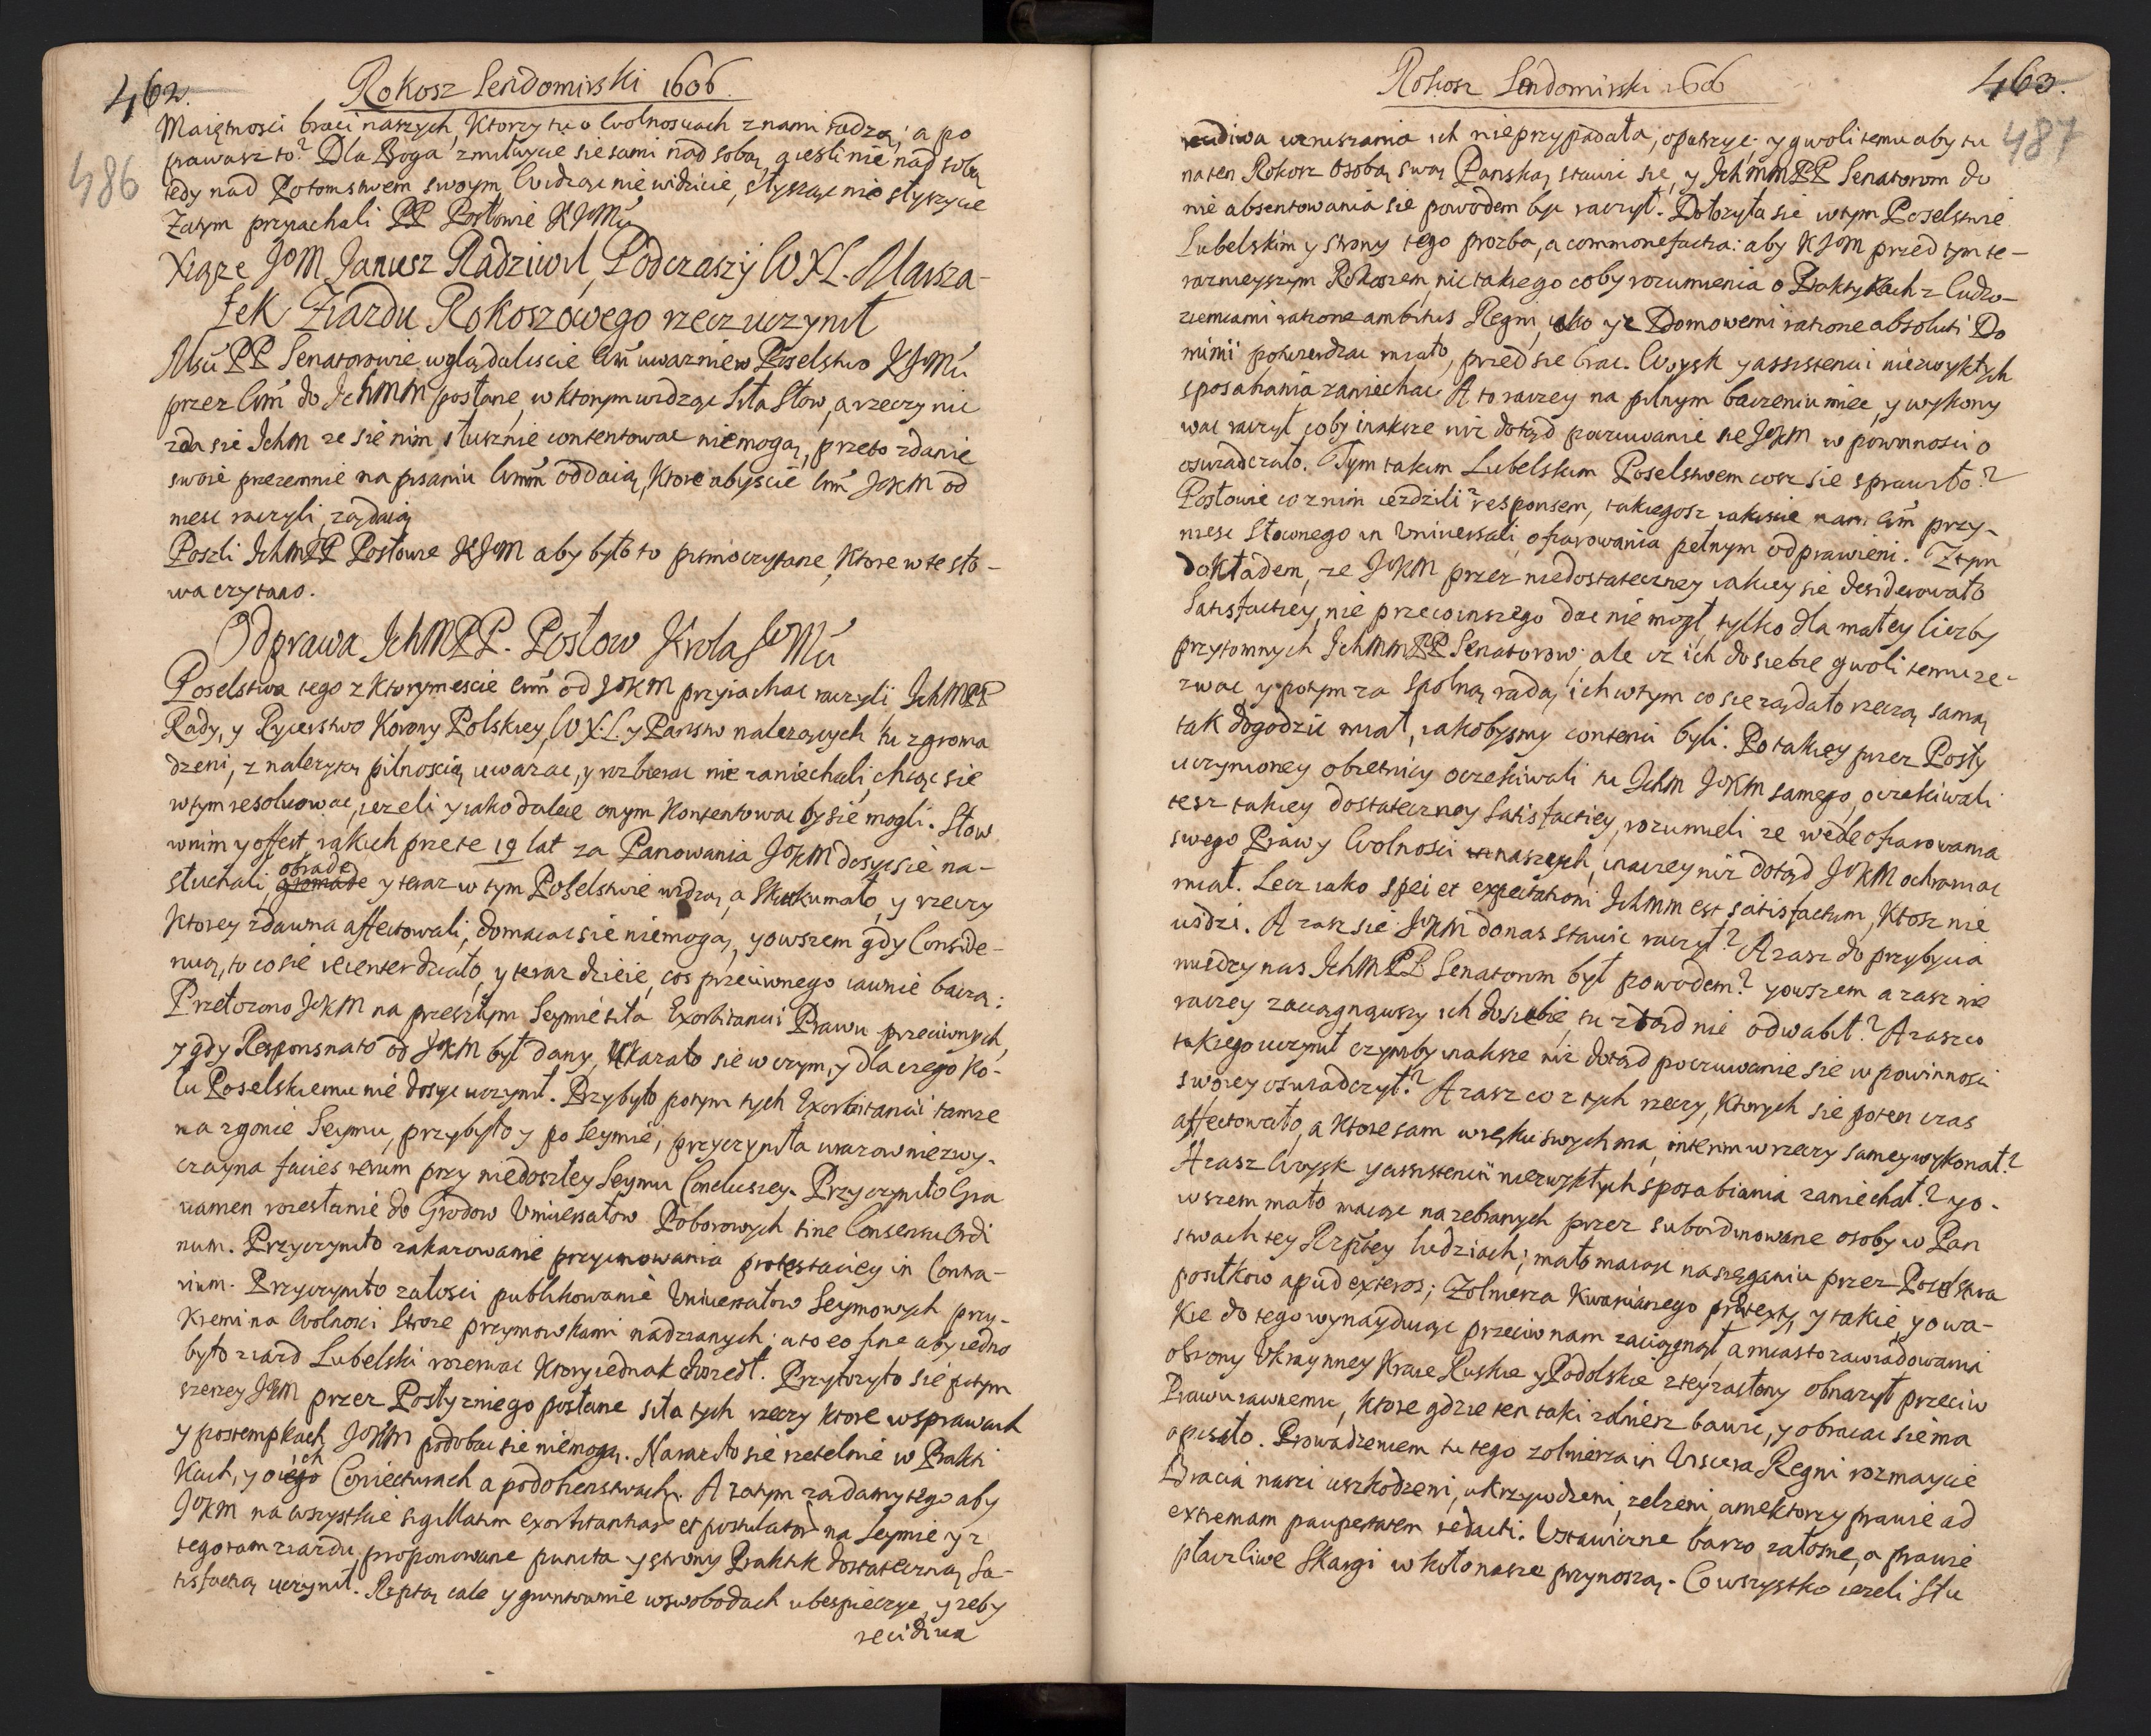 462.
Rokosz Sendomirski 1606.
486
Maiętnosci braci naszych, Ktorzy tu o Wolnosciach z nami radzą; a po
prawasz to? Dla Boga zmiłuycie sie sami nad sobą, a iesli nie nad sobą
tedy nad Potomstwem swoym, Widząc nie widzicie, słysząc nie słyszycie
Zatym przyachali PP Posłowie KJoMci
Xiąże JoM Janusz Radziwił, Podczaszy WXL. Marsza-
łek Ziazdu Rokoszowego rzecz uczynił
Mśći PP Senatorowie wglądaliscie Wm uwaznie w Poselstwo KJoMći
przez Wm do Jchmm posłane, w ktorym widząc siła słow, a rzeczy nic
zda sie Jchm ze sie nim słusznie contentowac niemogą, przeto zdanie
swoie przezemnie na pisaniu Wmm oddaią, Ktore abyscie Wm JoKM od
niesc raczyli, ządaią
Poszli JchmPP Posłowie KJoM aby było to pismo czytane, Ktore w te sło-
wa czytano.
Odprawa JchMPP. Posłow Krola JeoMći
Poselstwa tego z Ktorymescie Wm od JoKM przyiachac raczyli JchMPP
Rady, y Rycerstwo Korony Polskiey, WXL. y Panstw nalezących tu zgroma
dzeni, z nalezytą pilnoscią uwazac, y rozbierac nie zaniechali, chcąc sie
w tym resolwowac, iezeli y iako dalece onym Kontentowac by sie mogli. Słow
w nim y offert, iakich prze te 19 lat za Panowania JoKM dosyc sie na-
słuchali, gromade obrade y teraz w tym Poselstwie widzą, a Skutku mało, y rzeczy
Ktorey zdawna affectowali, domacac sie niemogą, y owszem gdy Conside-
ruią, to co sie recenter działo, y teraz dzieie, cos przeciwnego iawnie baczą:
Przełozono JoKM na przeszłym Seymie siła Exorbitancii Prawu przeciwnych,
y gdy Respons na to od JoKM był dany, Ukazało sie w czym, y dla czego Ko-
łu Poselskiemu nie dosyc uczynił. Przybyło potym tych Exorbitancii tamze
na zgonie Seymu, przybyło y po Seymie, przyczyniła urazow niezwy-
czayna facies rerum przy niedoszłey Seymu Conclusiey. Przyczyniło Gra
uamen rozesłanie do Grodow Uniuersałow Poborowych sine Consensu Ordi
num. Przyczyniło zakazowanie przyimowania protestaciey in Contra-
rium. Przyczyniło załosci publikowanie Uniuersałow Seymowych przy-
kremi na Wolnosci Stroze przymowkami nadzianych: a to eo fine aby iedno
było ziazd Lubelski rozerwac Ktory iednak doszedł. Przytoczyło sie potym
szerzey JoM przez Posły z niego posłane siła tych rzeczy ktore w sprawach
y postempkach JoKM podobac sie niemogą. Naraziło sie rzetelnie w Prakti
Kach, y o iego ich Coniecturach a podobienstwach. A zatym zadamy tego aby
JoKM na wszystkie sigillatim exorbitantias et postulata na Seymie y z
tego tam ziazdu, proponowane puncta y strony Praktik dostateczną Sa-
tisfactią uczynił. Rzptą cale y gruntownie w swobodach ubespieczyc, y zeby
recidiua
Rokosz Sendomirski 1606
463.
487
recidiwa wzruszania ich nie przypadała, opatrzyc y gwoli temu aby tu
na ten Rokosz osobą swą Panską stawic sie, y JchmmPP Senatorom do
nie absentowania sie powodem byc raczył. Dołozyła sie w tym Poselstwie
Lubelskim y strony tego prozba, a commonefactia: aby KJoM przed tym te-
raznieyszym Rokoszem, nic takiego coby rozumienia o Praktykach z ludzo-
ziemcami ratione ambitus Regni, iako y z Domowemi ratione absoluti Do
minii potwierdzac miało, przed sie brac. Woysk y assistencii niezwykłych
sposabiania zaniechac A to raczey na pilnym baczeniu miec, y wykony
wac raczył coby inaksze niz dotąd poczuwanie sie JoKM w powinnosci o
oswiadczało. Tym takim Lubelskim Poselstwem cosz sie sprawiło?
Posłowie co z nim iezdzili responsem, takiegosz iakiscie nam Wm przy-
niesc słownego in Uniuersali, ofiarowania pełnym odprawieni. Z tym
dokładem, ze JoKM przez niedostateczney iakiey sie desiderowało
Satisfactiey, nie przecoinszego dac nie mogł, tylko dla małey liczby
przytomnych JchmmPP Senatorow, ale iz ich do siebie gwoli temu ze-
zwac y potym za spolną radą, ich w tym co sie ządało rzeczą samą
tak dogodzic miał, iakobysmy contenti byli. Po takiey przez Posły
uczynioney obietnicy oczekiwali tu Jchm JoKM samego, oczekiwali
tesz takiey dostateczney Satisfactiey, rozumieli ze wedle ofiarowania
swego Praw y Wolnosci naszych, inaczey niz dotąd JoKM ochraniac
miał. Lecz iako spei et expectationi Jchmm est satisfactum, Ktosz nie
widzi. A zasz sie JoKM do nas stawic raczył? A zasz do przybycia
miedzy nas JchmPP Senatorom był powodem? y owszem a zasz nie
raczey zaciągnąwszy ich do siebie, tu ztąd nie odwabił? A zasz co
takiego uczynił czymby inaksze niz dotąd poczuwanie sie w powinnosci
swoiey oswiadczył? A zasz co z tych rzeczy, Ktorych sie po ten czas
affectowało, a Ktore sam w ręku swych ma, interim w rzeczy samey wykonał?
A zasz Woysk y assistencii niezwykłych sposabiania zaniechał? yo-
wszem mało maiąc na zebranych przez subordinowane osoby w Pan
stwach tey Rzptey ludziach; mało maiąc na sięganiu przez Poselstwa
posiłkow apud exteros; Zołnierza Kwarcianego pretexty, y takie, y owa-
kie do tego wynayduiąc przeciw nam zaciągnął, a miasto zawiadowania
obrony Ukraynney Kraie Ruskie y Podolskie z tey zasłony obnazył przeciw
Prawu iawnemu, ktore gdzie ten taki zołniesz bawic, y obracac sie ma
opisało. Prowadzeniem tu tego zołnierza in Viscera Regni rozmaycie
Bracia naszi uszkodzeni, ukrzywdzeni, zelzeni, a niektorzy prawie ad
extremam paupertatem redacti. Ustawiczne barzo załosne, a prawie
płaczliwe Skargi w koło nasze przynoszą. Co wszystko iezeli Słu